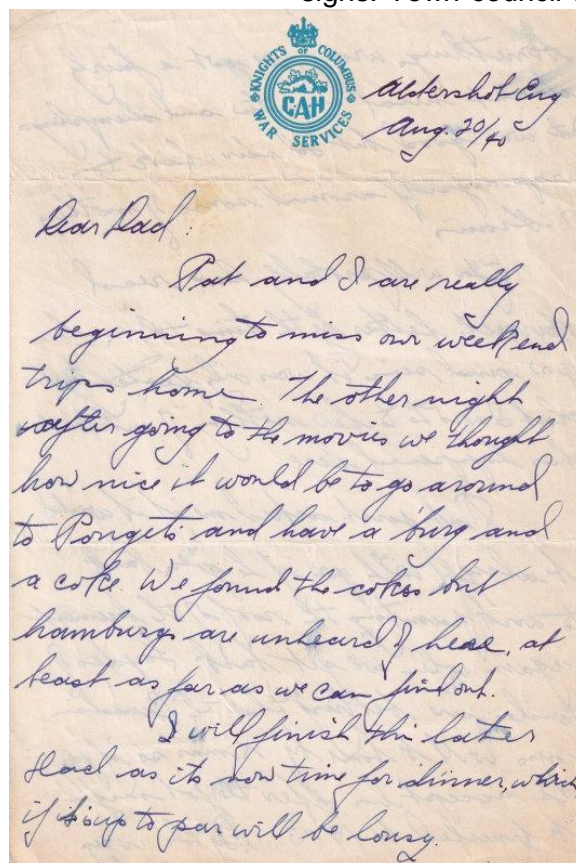 KNIGHTS OF COLUMBUS
CAH
WAR SERVICES
Aldershot Eng
Aug. 20/40
Dear Dad:
Pat and I are really
beginning to miss our weekend
trips home. The other night
after going to the movies we thought
how nice it would be to go around
to and have a 'burg and
a coke. We found the cokes but
hamburgs are unheard of here, at
least as far as we can find out.
I will finish this later
Dad as its now time for dinner, which
if its up to par will be lousy.